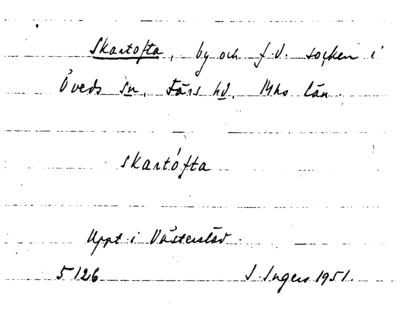 Skartofta, by och f.d. socken i
Öveds sn, Färs hd, Mhs län.
skartófta
Uppt i Västerstad.
5126 I. Ingers 1951.